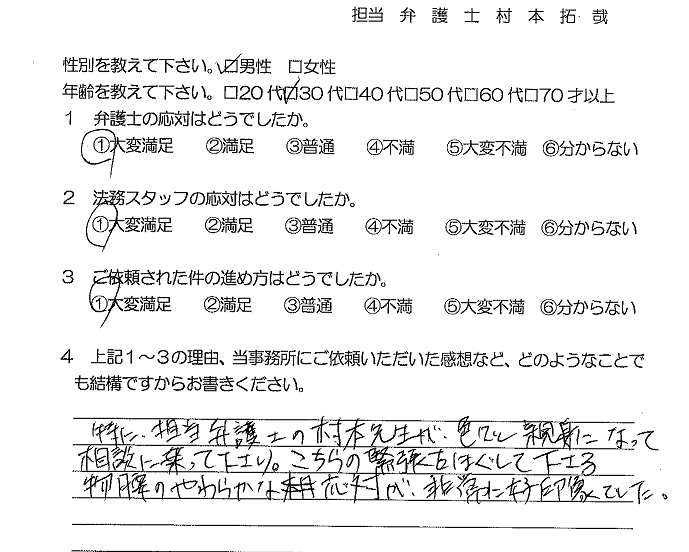 担当 弁護士 村本拓哉
性別を教えて下さい。☑男性 □女性
年齢を教えて下さい。□20代☑30代□40代□50代□60代□70才以上
1 弁護士の応対はどうでしたか。
①大変満足 ②満足 ③普通 ④不満 ⑤大変不満 ⑥分からない
2 法務スタッフの応対はどうでしたか。
①大変満足 ②満足 ③普通 ④不満 ⑤大変不満 ⑥分からない
3 ご依頼された件の進め方はどうでしたか。
①大変満足 ②満足 ③普通 ④不満 ⑤大変不満 ⑥分からない
4 上記1～3の理由、当事務所にご依頼いただいた感想など、どのようなことで
も結構ですからお書きください。
特に、担当弁護士の村本先生が、色々と親身になって
相談に乗って下さり。こちらの緊張をほぐして下さる
物腰のやわらかな応対が、非常に好印象でした。